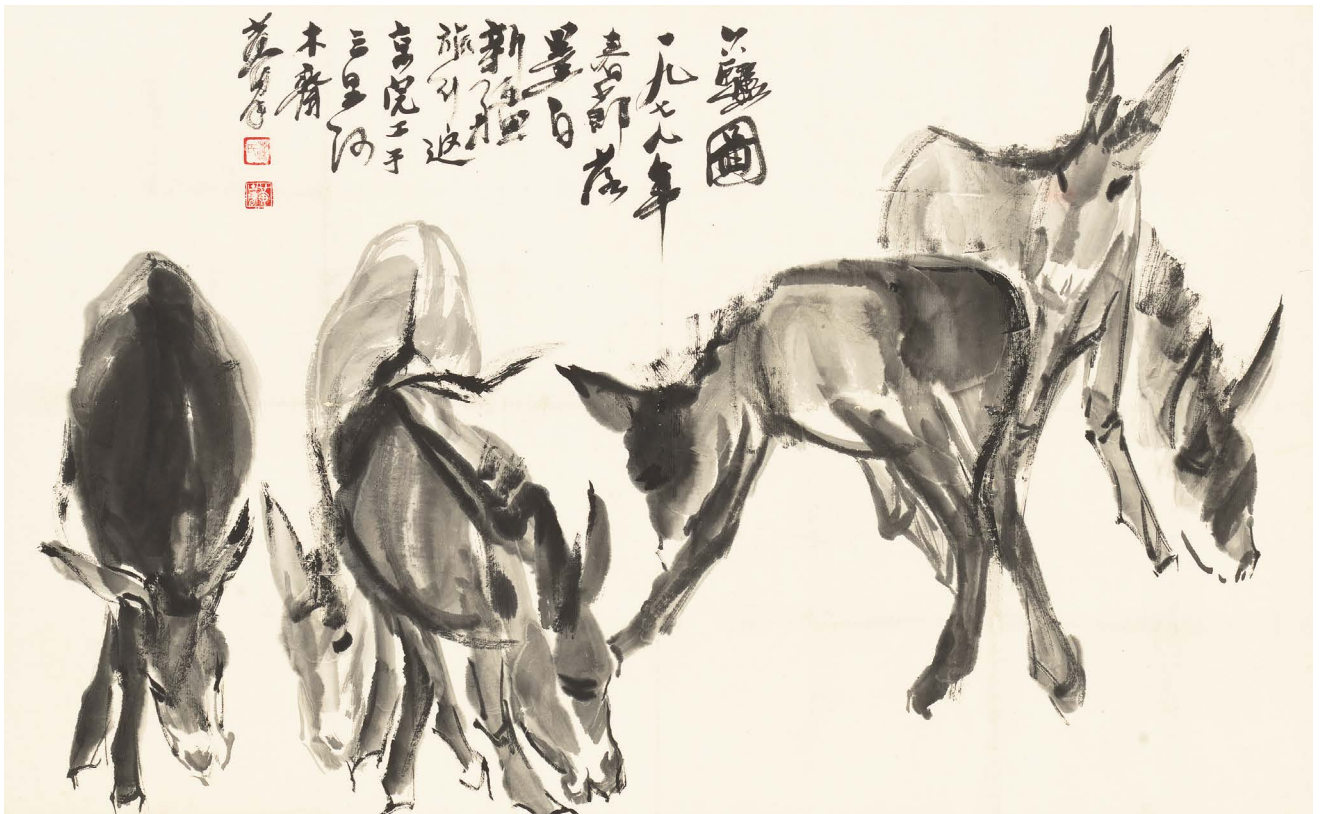 六驢圖
一九七九年
春節落
墨自
新疆
旅行返
京工于
三里河
木齋
黄胄